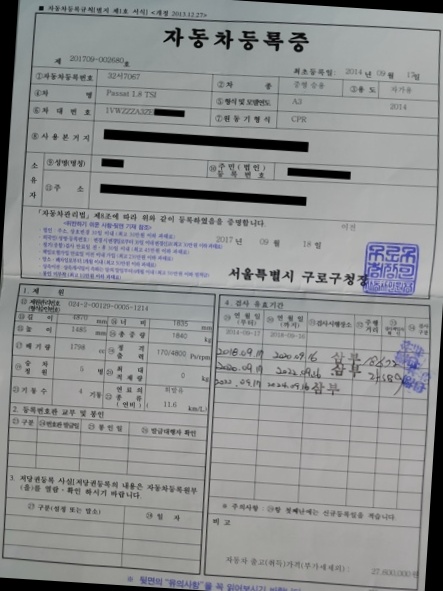 ■ 자동차등록규칙[별지 제1호 서식] <개정 2013.12.27>
자동차등록증
제 201709-002680호
최초등록일: 2014년 09월 17일
①자동차등록번호 32서7067 ②차 종 중형 승용 ③용도 자가용
④차 명 Passat 1.8 TSI ⑤형식 및 모델연도 A3 2014
⑥차 대 번 호 1VWZZZA3ZE ⑦원 동 기 형 식 CPR
⑧사 용 본 거 지
소유자
⑨성명(명칭) ⑩주민(법인)등록번호
⑪주 소
「자동차관리법」 제8조에 따라 위와 같이 등록하였음을 증명합니다.
이전
2017 년 09 월 18 일
서울특별시 구로구청장
1. 제 원
024-2-00129-0005-1214
⑬길 이 4870 mm ⑭너 비 1835 mm
⑮높 이 1485 mm 총 중 량 1840 kg
배 기 량 1798 cc 정격출력 170/4800 Ps/rpm
승차정원 5 명 최대적재량 0 kg
기 통 수 4 기통 연료의 종류(연비) 휘발유 11.6 km/L
2. 등록번호판 교부 및 봉인
구 분 번호판발급일 봉 인 일 발급대행자 확인
3. 저당권등록 사실(저당권등록의 내용은 자동차등록원부(을)를 열람·확인 하시기 바랍니다.
구분(설정 또는 말소) 일 자
4. 검사 유효기간
연월일(부터) 연월일(까지) 검사시행장소 주행거리
2014-09-17 2018-09-16
2018.09.17 2020.09.16 삼부
2020.09.17 2022.09.16 삼부
2022.09.17 2024.09.16 삼부
※ 주의사항: 항 첫째란에는 신규등록일을 적습니다.
비 고
자동차 출고(취득)가격(부가세제외): 27,600,000원
※ 뒷면의 "유의사항"을 꼭 읽어보시기 바랍니다